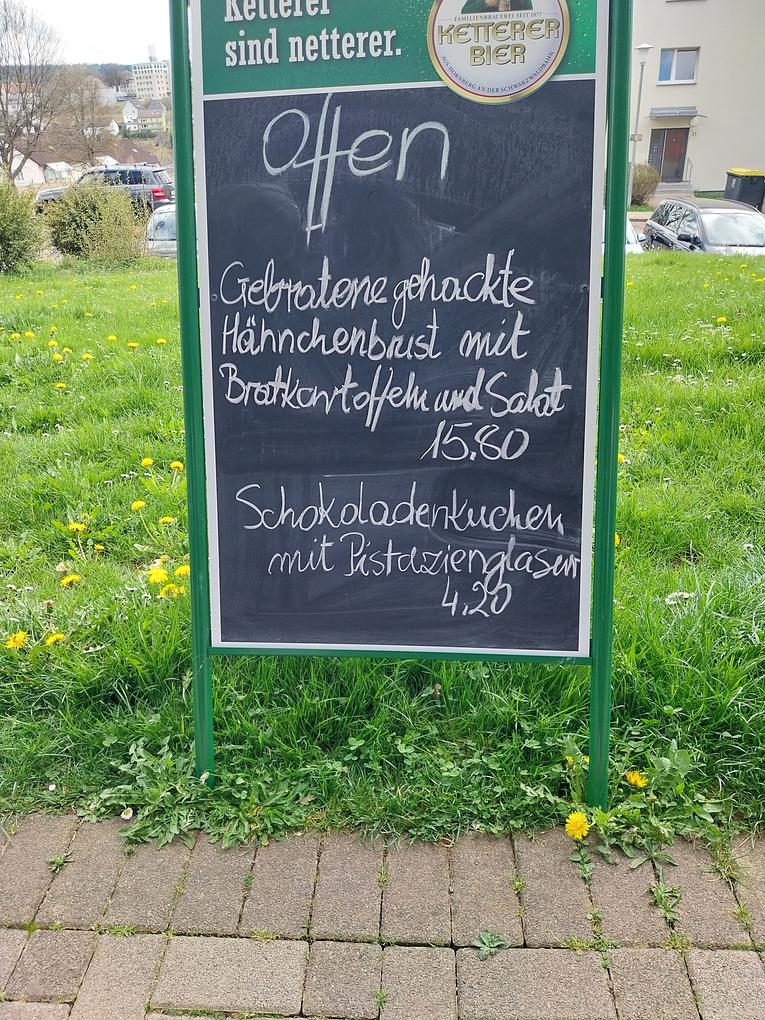 Ketterer
sind netterer.
FAMILIENBRAUEREI SEIT 1877
KETTERER
BIER
AUS HORNBERG AN DER SCHWARZWALDBAHN
Offen
Gebratene gehackte
Hähnchenbrust mit
Bratkartoffeln und Salat
15,80
Schokoladenkuchen
mit Pistazienglasur
4,20